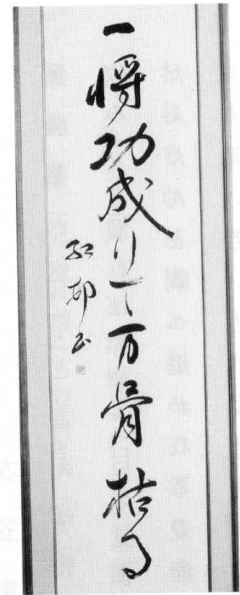 一将功成りて万骨枯る